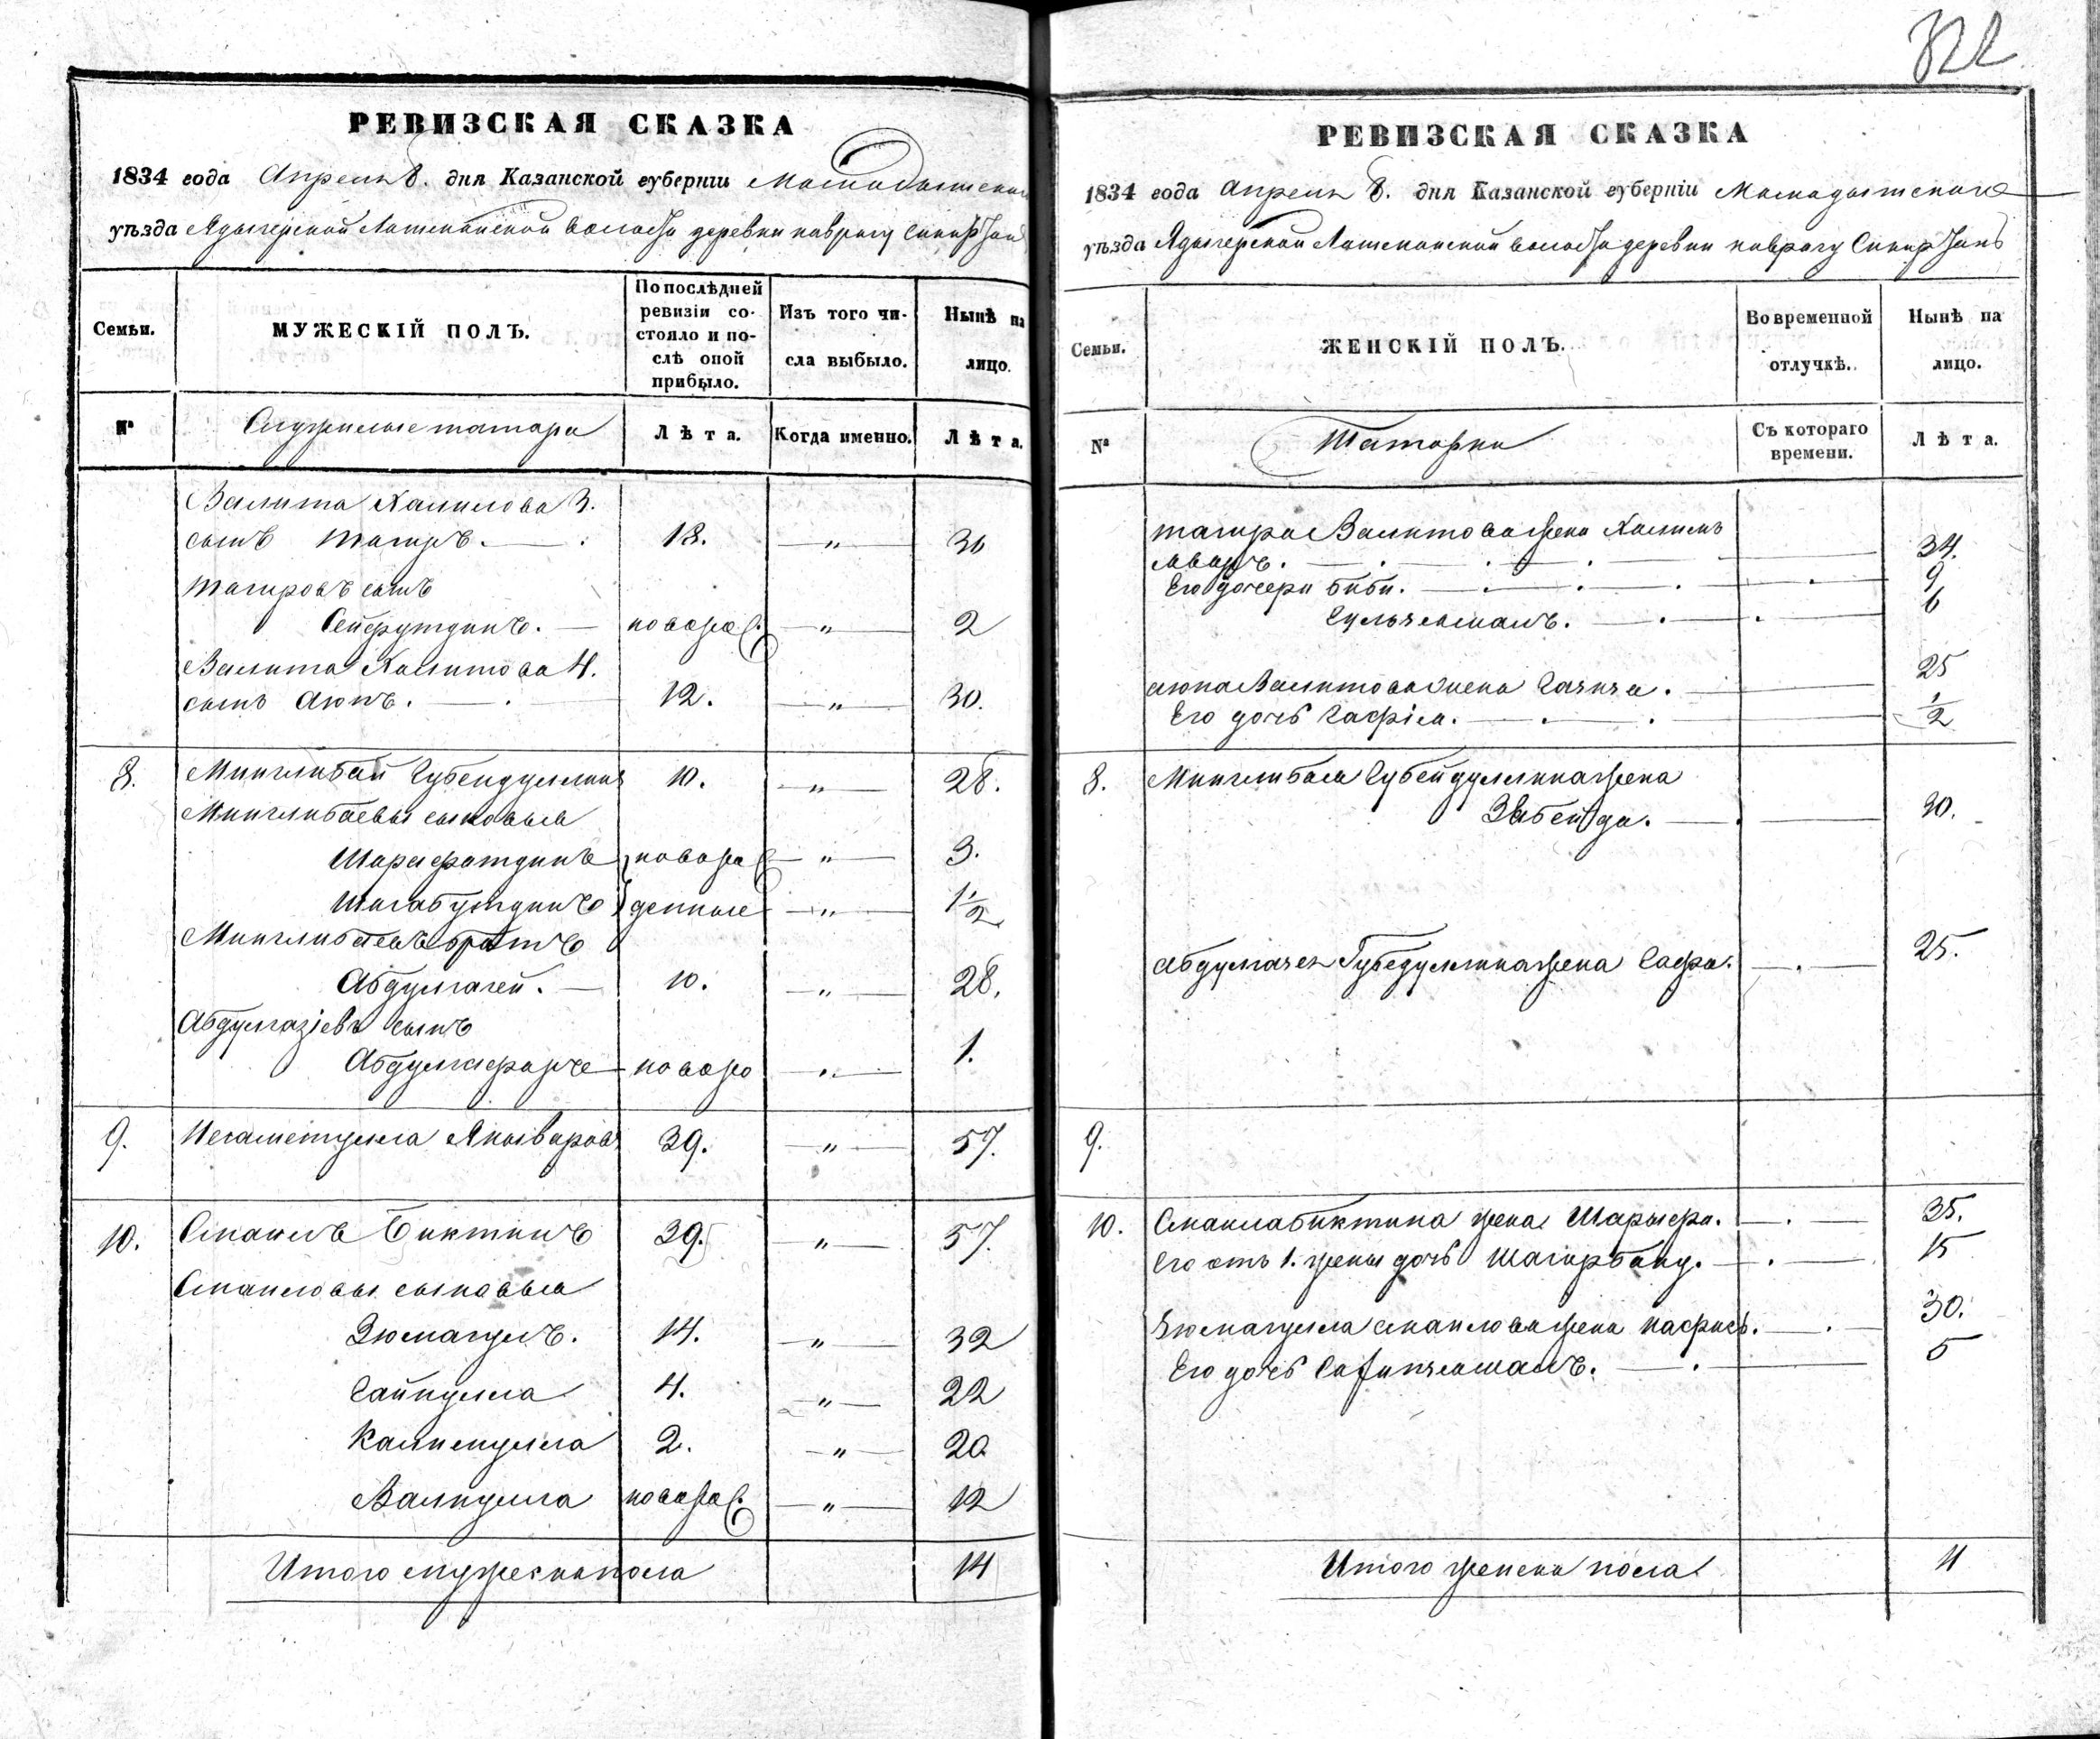 322
РЕВИЗСКАЯ СКАЗКА
1834 года Апреля 8. дня Казанской губерніи Мамадышскаго
уѣзда Ядыгерской волости деревни
Семьи.
МУЖЕСКІЙ ПОЛЪ.
По послѣдней ревизіи состояло и послѣ оной прибыло.
Изъ того числа выбыло.
Нынѣ на лицо.
№
Служилые татара
Лѣта.
Когда именно.
Лѣта.
Валита Халитова 3.
сынъ Тагиръ. 18. — " — 36
Тагировъ сынъ
Сейфутдинъ. — новорож. — " — 2
Валита Халитова 4.
сынъ Аюпъ. 12. — " — 30.
8. Минглибай Губейдуллинъ 10. — " — 28.
Минглибаевы сыновья
Шарафутдинъ новорож — " — 3.
Шигабутдинъ денные — " — 1 1/2
Минглибаевъ братъ
Абдулгазей. — 10. — " — 28.
Абдулгазіевъ сынъ
новоро — " — 1.
9. Негаметулла 39. — " — 57.
10. Смаилъ Биктинъ 39. — " — 57.
Смаиловы сыновья
Зюмагулъ. 14. — " — 32
4. — " — 22
Калимулла 2. — " — 20
Валиулла новорож. — " — 12
Итого мужеска пола 14
РЕВИЗСКАЯ СКАЗКА
1834 года Апреля 8. дня Казанской губерніи Мамадышскаго
уѣзда Ядыгерской волости деревни
Семьи.
ЖЕНСКІЙ ПОЛЪ.
Во временной отлучкѣ.
Нынѣ на лицо.
№
Татарки
Съ котораго времени.
Лѣта.
Тагира Валитова жена
34.
Его дочери Биби. 9
6
Аюпа Валитова жена 25
Его дочь 1/2
8. Минглибая Губейдуллина жена
Зюбейда. 30.
Абдулгазея Губедуллина жена 25.
9.
10. Смаила Биктина жена 35.
Его отъ 1. жены дочь Шагирбану. 15
Зюмагула Смаилова жена 30.
Его дочь 5
Итого женска пола 11